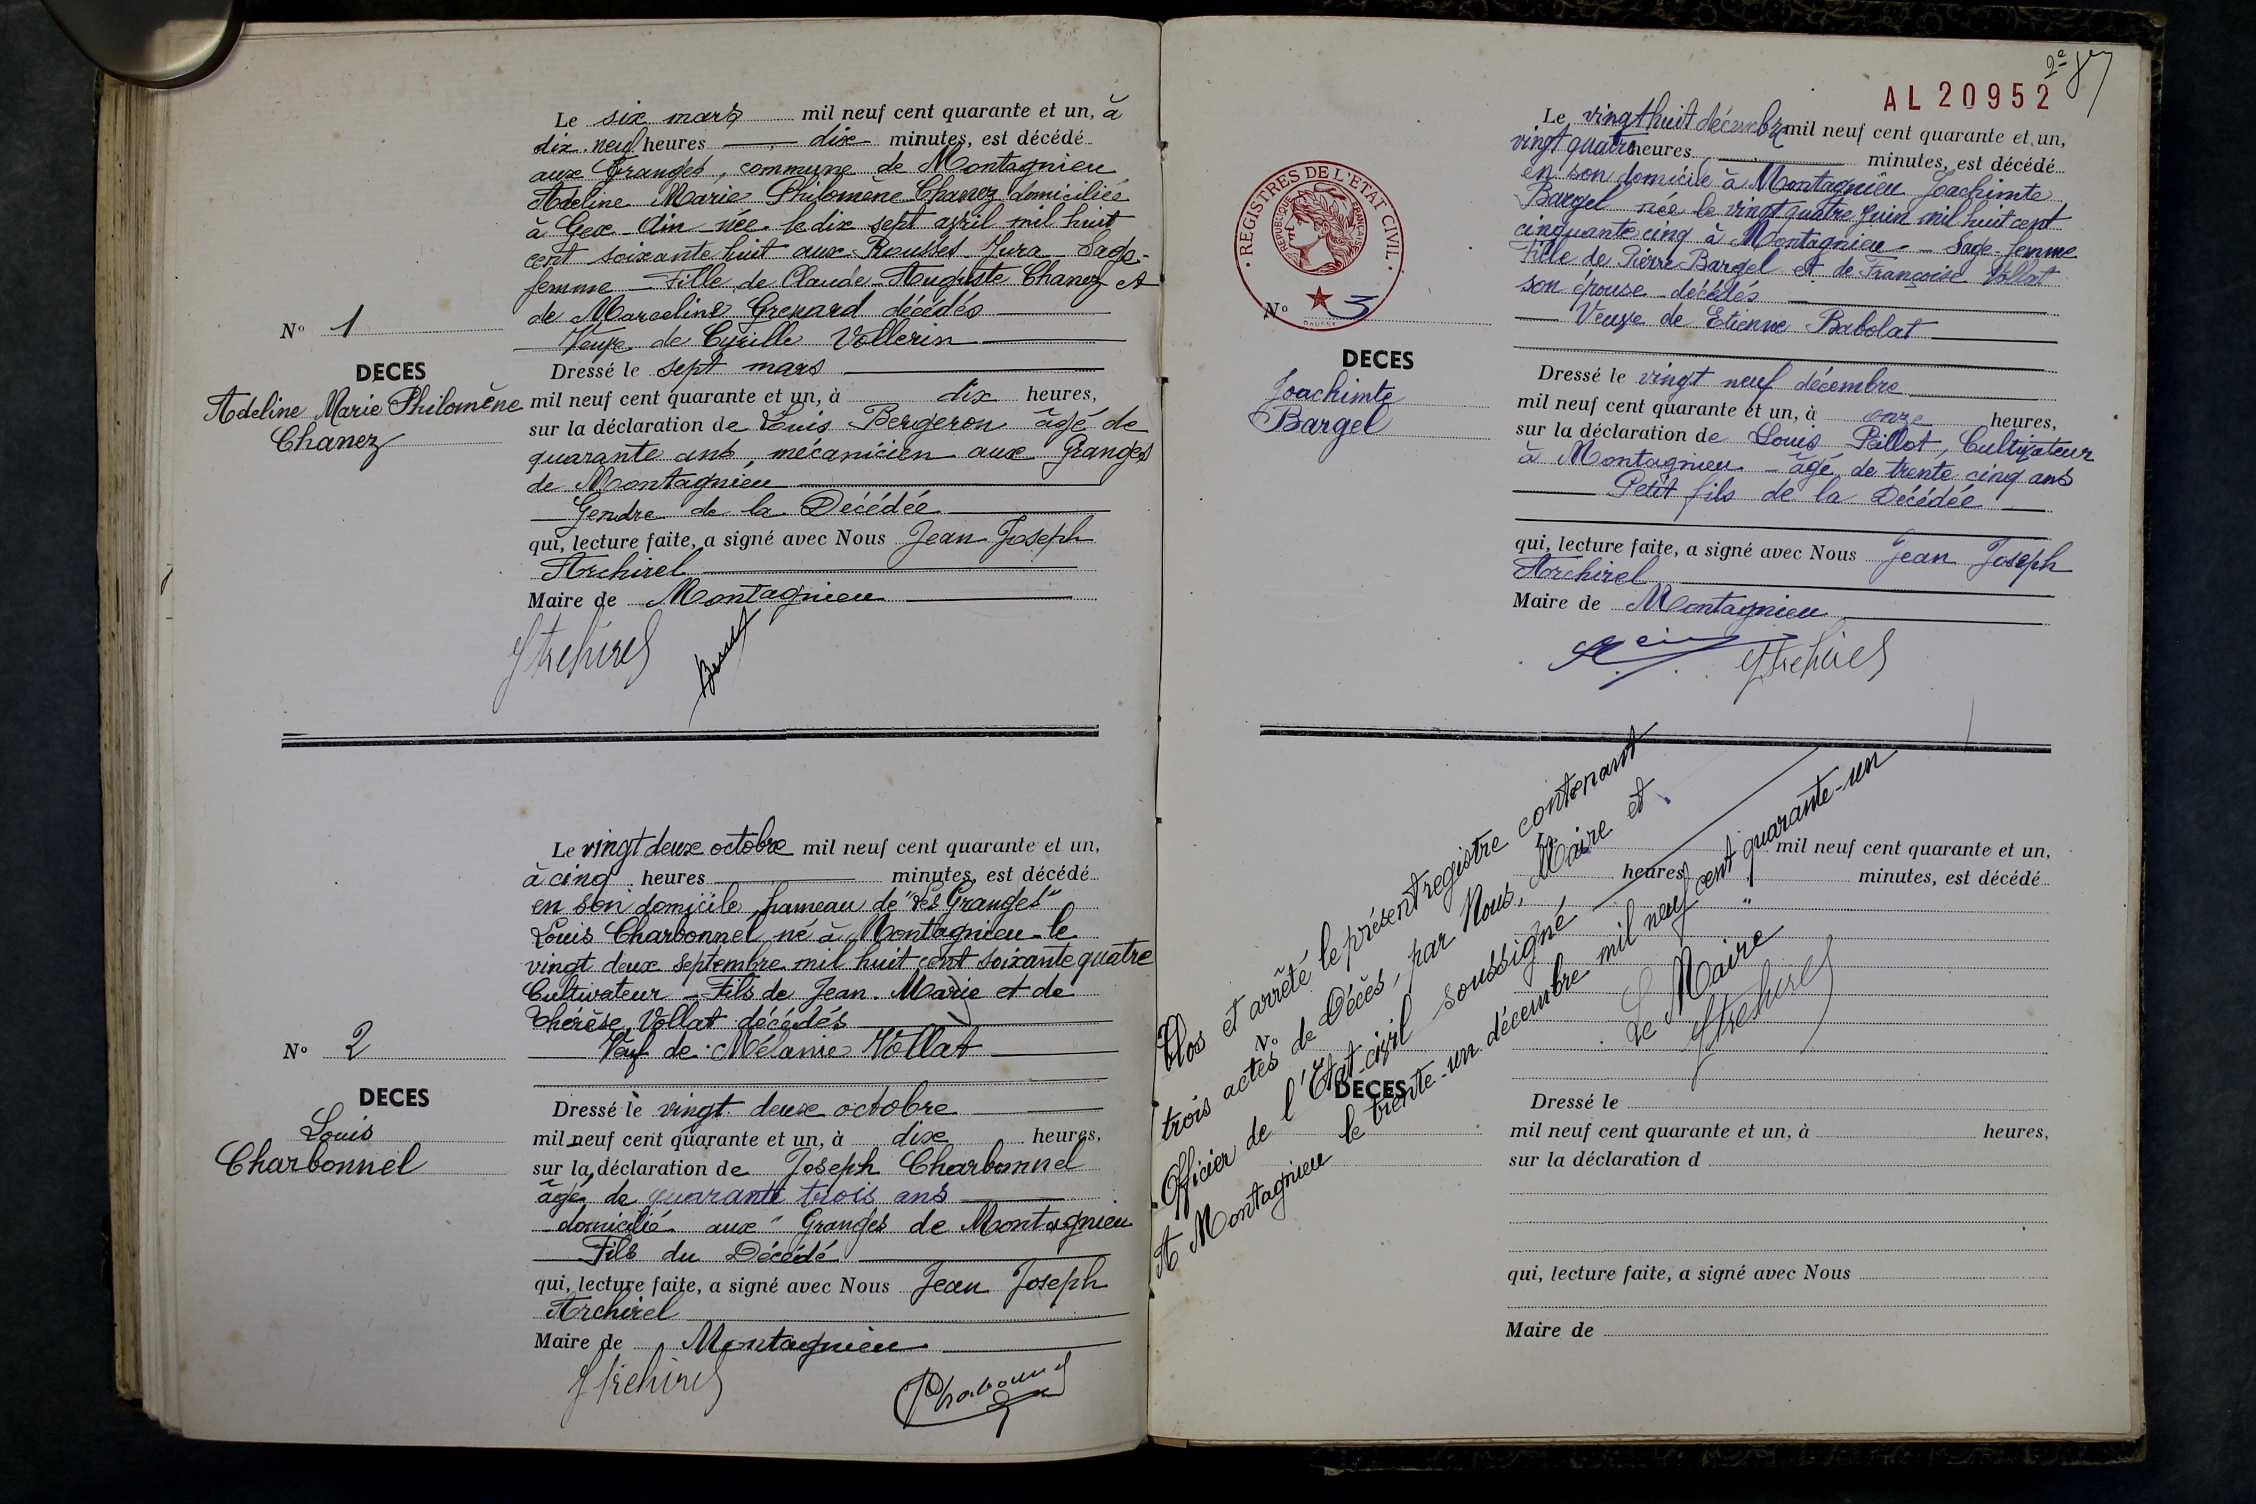 Le six mars mil neuf cent quarante et un, à
dix neuf heures dix minutes, est décédé
aux Granges, commune de Montagnieu
Adeline Marie Philomène Chanez domiciliée
à Gex Ain née le dix sept avril mil huit
cent soixante huit aux Rousses Jura Sage-
femme Fille de Claude Auguste Chanez et
de Marceline Grenard décédés
Veuve de Cyrille Vollerin
N° 1
DECES
Adeline Marie Philomène
Chanez
Dressé le sept mars
mil neuf cent quarante et un, à dix heures,
sur la déclaration de Louis Bergeron âgé de
quarante ans, mécanicien aux Granges
de Montagnieu
Gendre de la Décédée
qui, lecture faite, a signé avec Nous Jean Joseph
Archirel
Maire de Montagnieu
Le vingt deux octobre mil neuf cent quarante et un,
à cinq heures minutes, est décédé
en son domicile, hameau de "des Granges"
Louis Charbonnel né à Montagnieu le
vingt deux septembre mil huit cent soixante quatre
Cultivateur - Fils de Jean. Marie et de
Thérèse Vollat décédés
Veuf de Mélanie Vollat
N° 2
DECES
Louis
Charbonnel
Dressé le vingt deux octobre
mil neuf cent quarante et un, à dix heures,
sur la déclaration de Joseph Charbonnel
âgé de quarante trois ans
domicilié aux Granges de Montagnieu
Fils du Décédé
qui, lecture faite, a signé avec Nous Jean Joseph
Archirel
Maire de Montagnieu
Charbonnel
2e
AL 20952
Le vingt huit décembre mil neuf cent quarante et un,
vingt quatre heures minutes, est décédé
en son domicile à Montagnieu Joachimte
Bargel née le vingt quatre Juin mil huit cent
cinquante cinq à Montagnieu - Sage-femme
Fille de Pierre Bargel et de Françoise Vollat
son épouse décédés
Veuve de Etienne Babolat
REGISTRES DE L'ETAT CIVIL
REPUBLIQUE FRANÇAISE
N° 3
DECES
Joachimte
Bargel
Dressé le vingt neuf décembre
mil neuf cent quarante et un, à onze heures,
sur la déclaration de Louis Paillot, Cultivateur
à Montagnieu - âgé de trente cinq ans
Petit fils de la Décédée
qui, lecture faite, a signé avec Nous Jean Joseph
Archirel
Maire de Montagnieu
Clos et arrêté le présent registre contenant
trois actes de Décès, par Nous, Maire et
Officier de l'Etat-civil soussigné
A Montagnieu le trente-un décembre mil neuf cent quarante-un
Le Maire
Le mil neuf cent quarante et un,
heures minutes, est décédé
N°
DECES
Dressé le
mil neuf cent quarante et un, à heures,
sur la déclaration d
qui, lecture faite, a signé avec Nous
Maire de